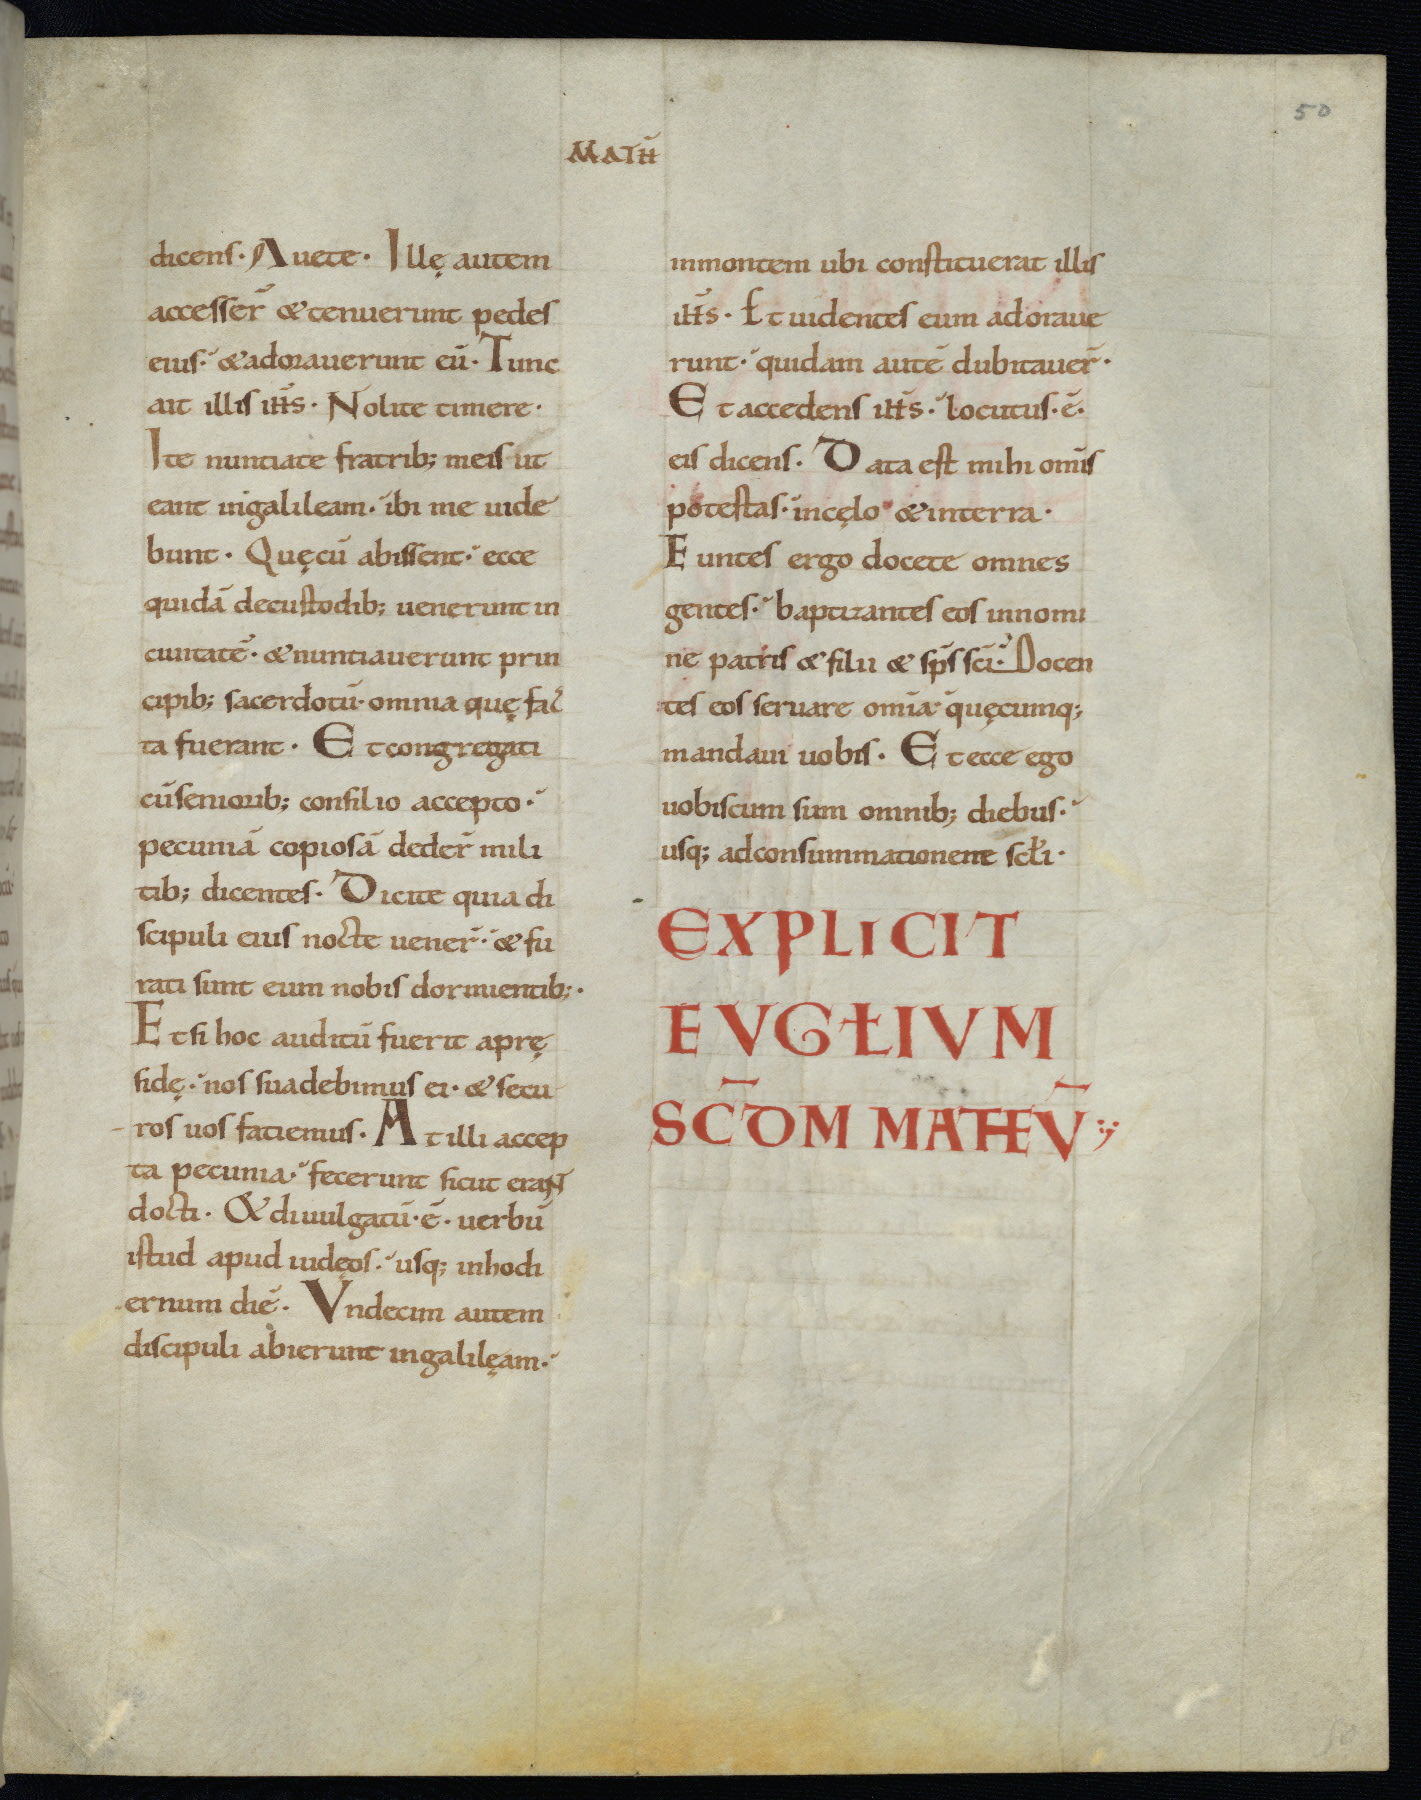 50
MATH̄
dicens· Auete· Illę autem
accesser̄ & tenuerunt pedes
eius· & adorauerunt eū· Tunc
ait illis ih̄s· Nolite timere·
Ite nuntiate fratrib; meis ut
eant ingalileam· ibi me uide
bunt· Quęcū abissent· ecce
quidā decustodib; uenerunt in
ciuitatē· & nuntiauerunt prin
cipib; sacerdotū· omnia quę fac
ta fuerant· Et congregati
cū seniorib; consilio accepto·
pecuniā copiosā deder̄ mili
tib; dicentes· Dicite quia di
scipuli eius nocte uener̄· & fu
rati sunt eum nobis dormientib;·
Et si hoc auditū fuerit aprę
sidę· nos suadebimus ei· & secu
ros uos faciemus· At illi accep
ta pecunia· fecerunt sicut erant
docti· & diuulgatū·ē· uerbū
istud apud iudęos· usq; inhodi
ernum diē· Vndecim autem
discipuli abierunt ingalilęam·
inmontem ubi constituerat illis
ih̄s· Et uidentes eum adoraue
runt· quidam autē dubitauer̄·
Et accedens ih̄s· locutus·ē·
eis dicens· Data est mihi om̄is
potestas· incęlo & interra·
Euntes ergo docete omnes
gentes· baptizantes eos innomi
ne patris & filii & sp̄s sc̄i· Docen
tes eos seruare omīa quęcumq;
mandaui uobis· Et ecce ego
uobiscum sum omnib; diebus·
usq; adconsummationem scl̄i·
EXPLICIT
EVGŁIVM
SC̄DM MATHEV̄;
50